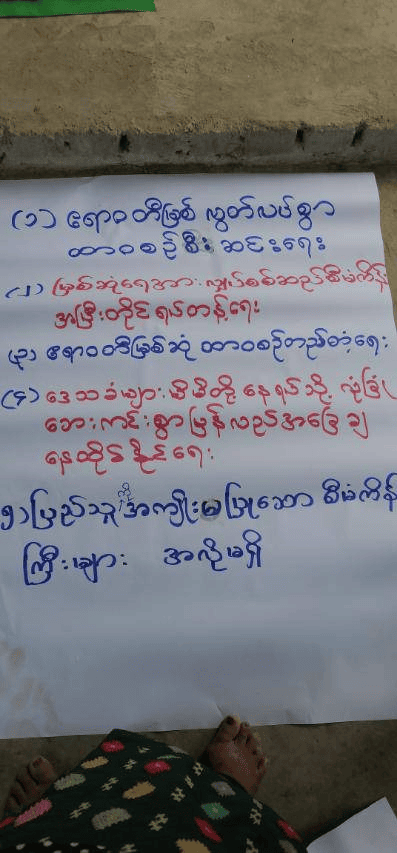 (၁) ဧရာဝတီမြစ် လွတ်လပ်စွာ
ထာဝစဉ်စီးဆင်းရေး
(၂) မြစ်ဆုံရေအားလျှပ်စစ်ဆည်စီမံကိန်း
အပြီးတိုင် ရပ်တန့်ရေး
(၃) ဧရာဝတီမြစ်ဆုံ ထာဝစဉ်တည်တံ့ရေး
(၄) ဒေသခံများ မိမိတို့ နေရပ်သို့ လုံခြုံ
ဘေးကင်းစွာ ပြန်လည်အခြေချ
နေထိုင်နိုင်ရေး
၅) ပြည်သူကို အကျိုးမပြုသော စီမံကိန်း
ကြီးများ အလိုမရှိ